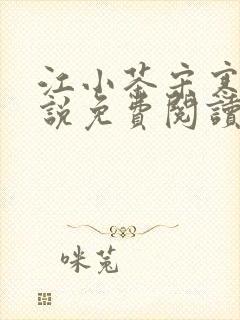 江小茶宋寒
說免費閱讀
咪兔